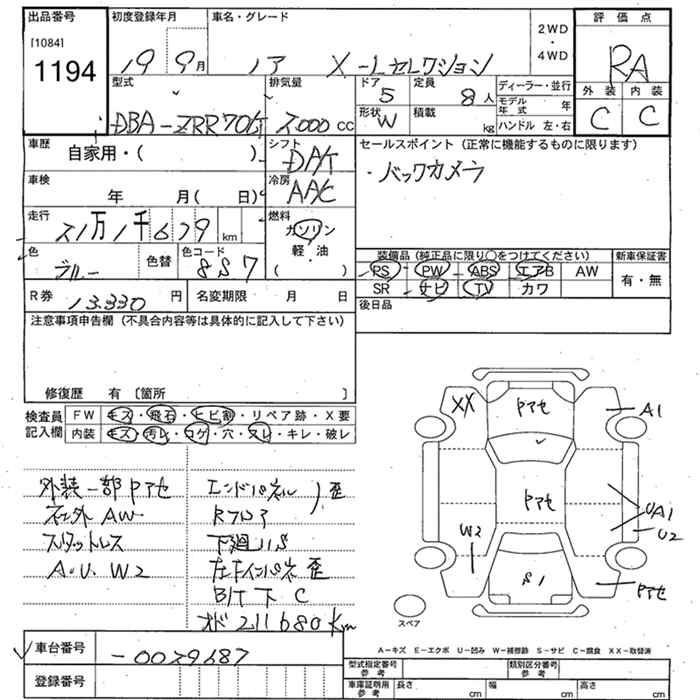 出品番号
[1084]
1194
初度登録年月
19 9月
車名・グレード
ノア X-Lセレクション
2WD
・
4WD
評価点
RA
外装 内装
C C
型式
DBA-ZRR70G
排気量
2000 CC
ドア
5
定員
8人
形状
W
積載
kg
ディーラー・並行
モデル年式 年
ハンドル 左・右
車歴
自家用・( )
シフト
DA/T
セールスポイント (正常に機能するものに限ります)
・バックカメラ
車検
年 月( 日)
冷房
AA/C
走行
21万1千679 km
燃料
ガソリン
軽・油
( )
色
ブルー
色替
色コード
8S7
装備品 (純正品に限り〇をつけてください)
PS PW ABS エアB AW
SR ナビ TV カワ
新車保証書
有・無
R券
13,330 円
名変期限 月 日
後日品
注意事項申告欄 (不具合内容等は具体的に記入して下さい)
修復歴 有 〔箇所 〕
検査員記入欄
FW キズ・飛石・ヒビ割・リペア跡・X要
内装 キズ・汚レ・コゲ・穴・スレ・キレ・破レ
外装一部Pアセ
社外 AW
スタットレス
A.U.W2
エンドパネル 歪
Rフロア
下廻りS
左Fインパネ 歪
B/T下 C
オド 211680 Km
XX
Pアセ
A1
Pアセ
UA1
U2
W2
S1
Pアセ
スペア
A-キズ E-エクボ U-凹み W-補修跡 S-サビ C-腐食 XX-取替済
車台番号
-0029687
登録番号
型式指定番号
参考
類別区分番号
参考
車庫証明用
参考
長さ cm 幅 cm 高さ cm